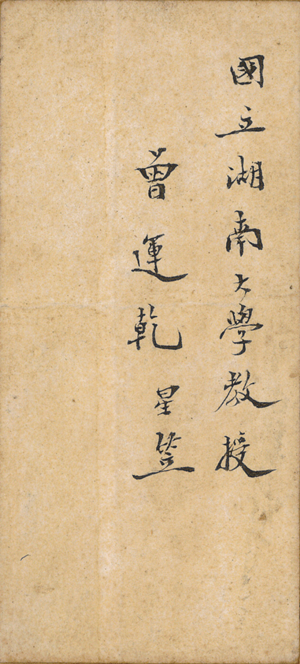 國立湖南大學教授
曾運乾星笠